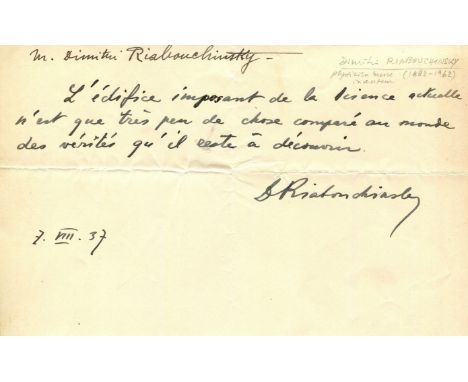 M. Dimitri Riabouchinsky
Dimitri RIABOUCHINSKY
physicien russe (1882-1962)
inventeur
L'édifice imposant de la sience actuelle
n'est que très peu de chose comparé au monde
des vérités qu'il reste à découvrir.
D Riabouchinsky
7. VIII. 37